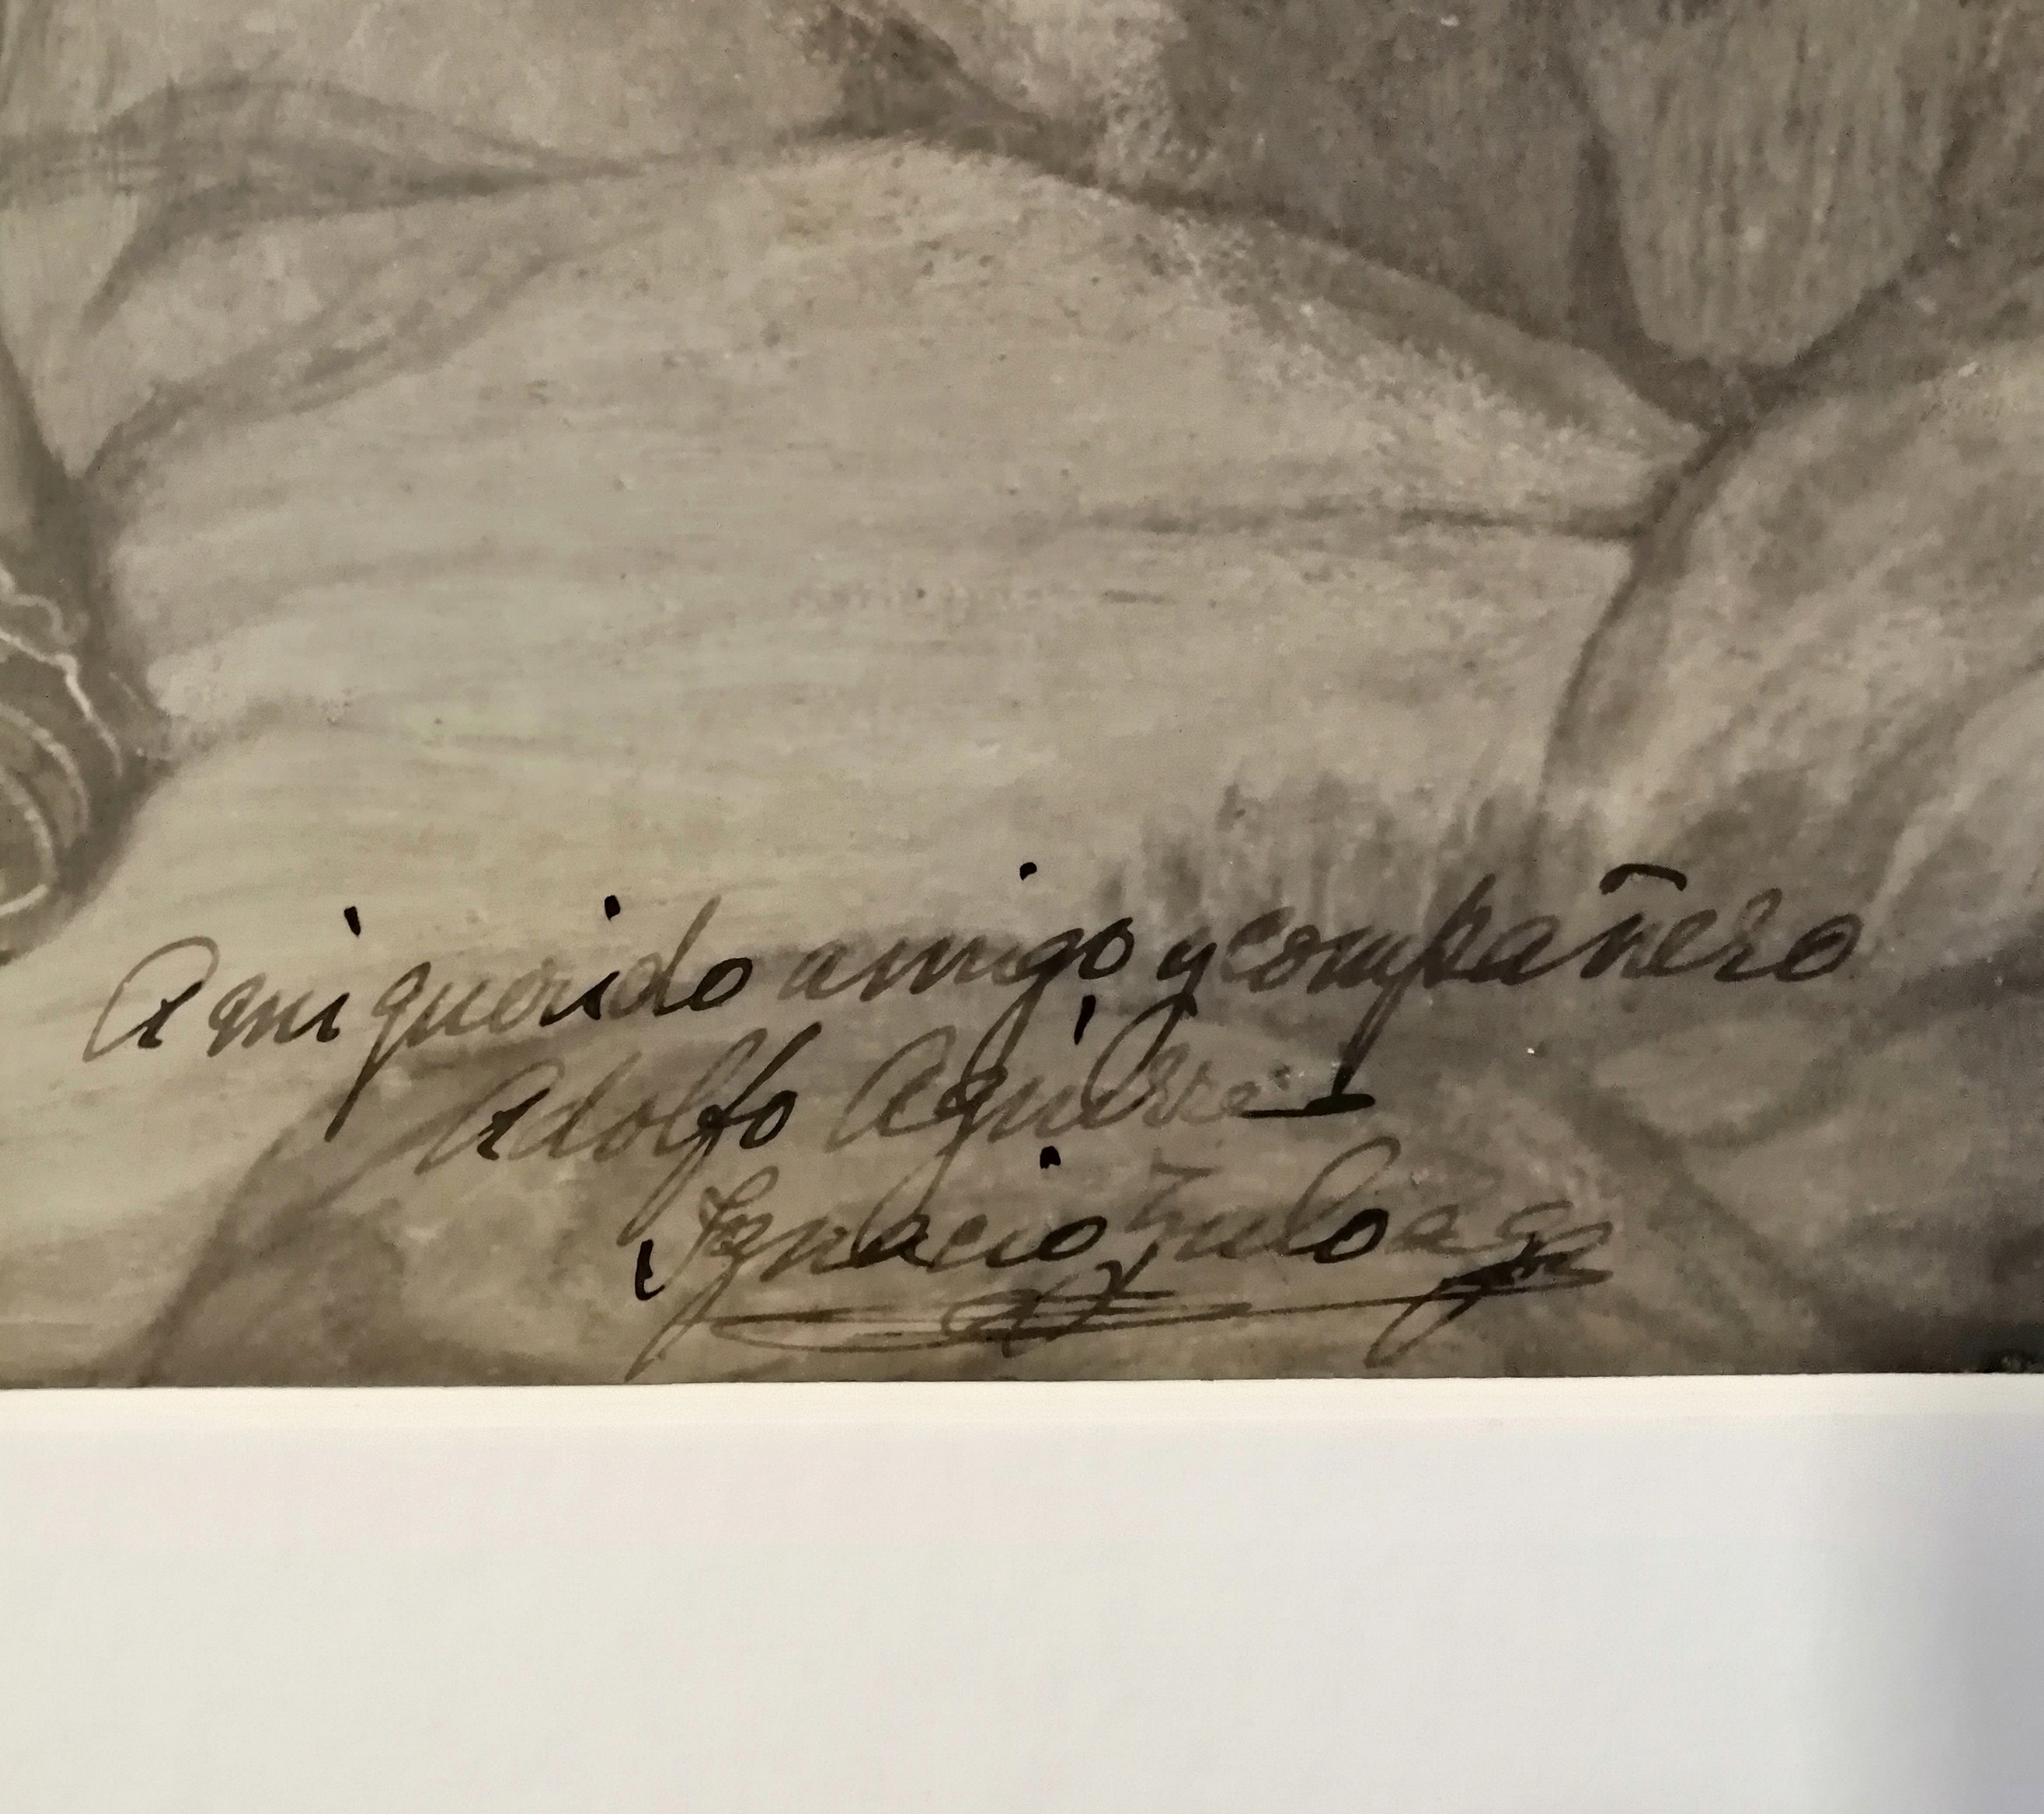 A mi querido amigo y compañero
Adolfo Aguirre
Ignacio Zuloaga